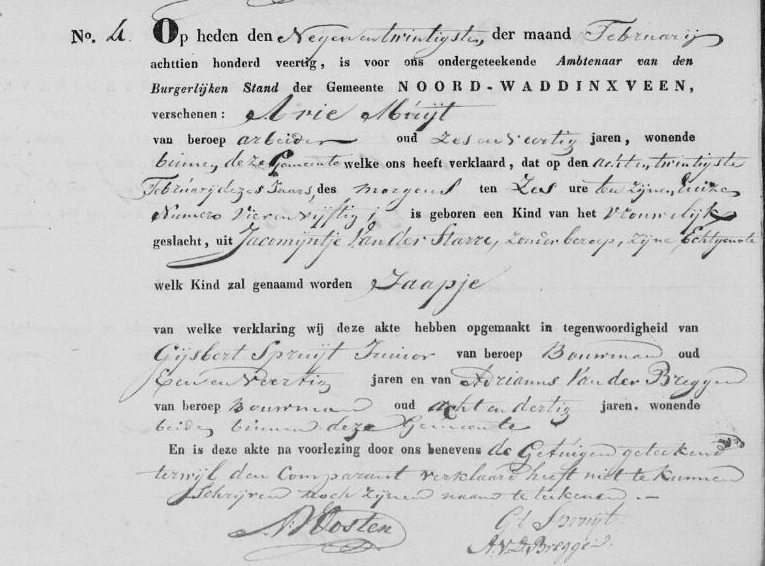 No. 4. Op heden den Negenentwintigsten der maand Februarij
achttien honderd veertig, is voor ons ondergeteekende Ambtenaar van den
Burgerlijken Stand der Gemeente NOORD-WADDINXVEEN,
verschenen: Arie Muijt
van beroep arbeider oud zesenveertig jaren, wonende
binnen deze Gemeente welke ons heeft verklaard, dat op den achtentwintigste
Februarij dezes Jaars, des morgens ten Zes ure ten zijnen huize
Numero Vierenvijftig, is geboren een Kind van het Vrouwelijk
geslacht, uit Jacomijntje Van der Starre, zonder beroep, zijne Echtgenote
welk Kind zal genaamd worden Jaapje
van welke verklaring wij deze akte hebben opgemaakt in tegenwoordigheid van
Gijsbert Spruijt Junior van beroep Bouwman oud
Eenenveertig jaren en van Adrianus Van der Breggen
van beroep Bouwman oud achtendertig jaren. wonende
beide binnen deze Gemeente
En is deze akte na voorlezing door ons benevens de Getuigen geteekend
terwijl den Comparant verklaard heeft niet te kunnen
Schrijven noch zijnen naam te teekenen. —
Oosten
Gt Spruijt
A.V.D. Breggen